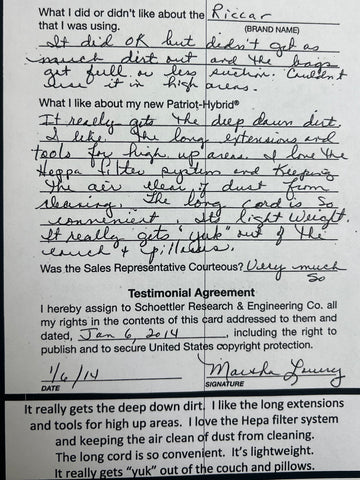 What I did or didn't like about the Riccar
that I was using. (BRAND NAME)
It did OK but didn't get as
much dirt out and the bags
get full or less suction. Couldn't
use it in high areas.
What I like about my new Patriot-Hybrid®
It really gets the deep down dirt
I like the long extensions and
tools for high up areas. I love the
Heppa filter system and keeping
the air clean of dust from
cleaning. The long cord is so
convenient. Its light weight.
It really gets "yuk" out of the
couch + pillows.
Was the Sales Representative Courteous? Very much
So
Testimonial Agreement
I hereby assign to Schoettler Research & Engineering Co. all
my rights in the contents of this card addressed to them and
dated, Jan 6, 2014, including the right to
publish and to secure United States copyright protection.
1/6/14 Marsha Lowry
DATE SIGNATURE
It really gets the deep down dirt. I like the long extensions
and tools for high up areas. I love the Hepa filter system
and keeping the air clean of dust from cleaning.
The long cord is so convenient. It's lightweight.
It really gets "yuk" out of the couch and pillows.